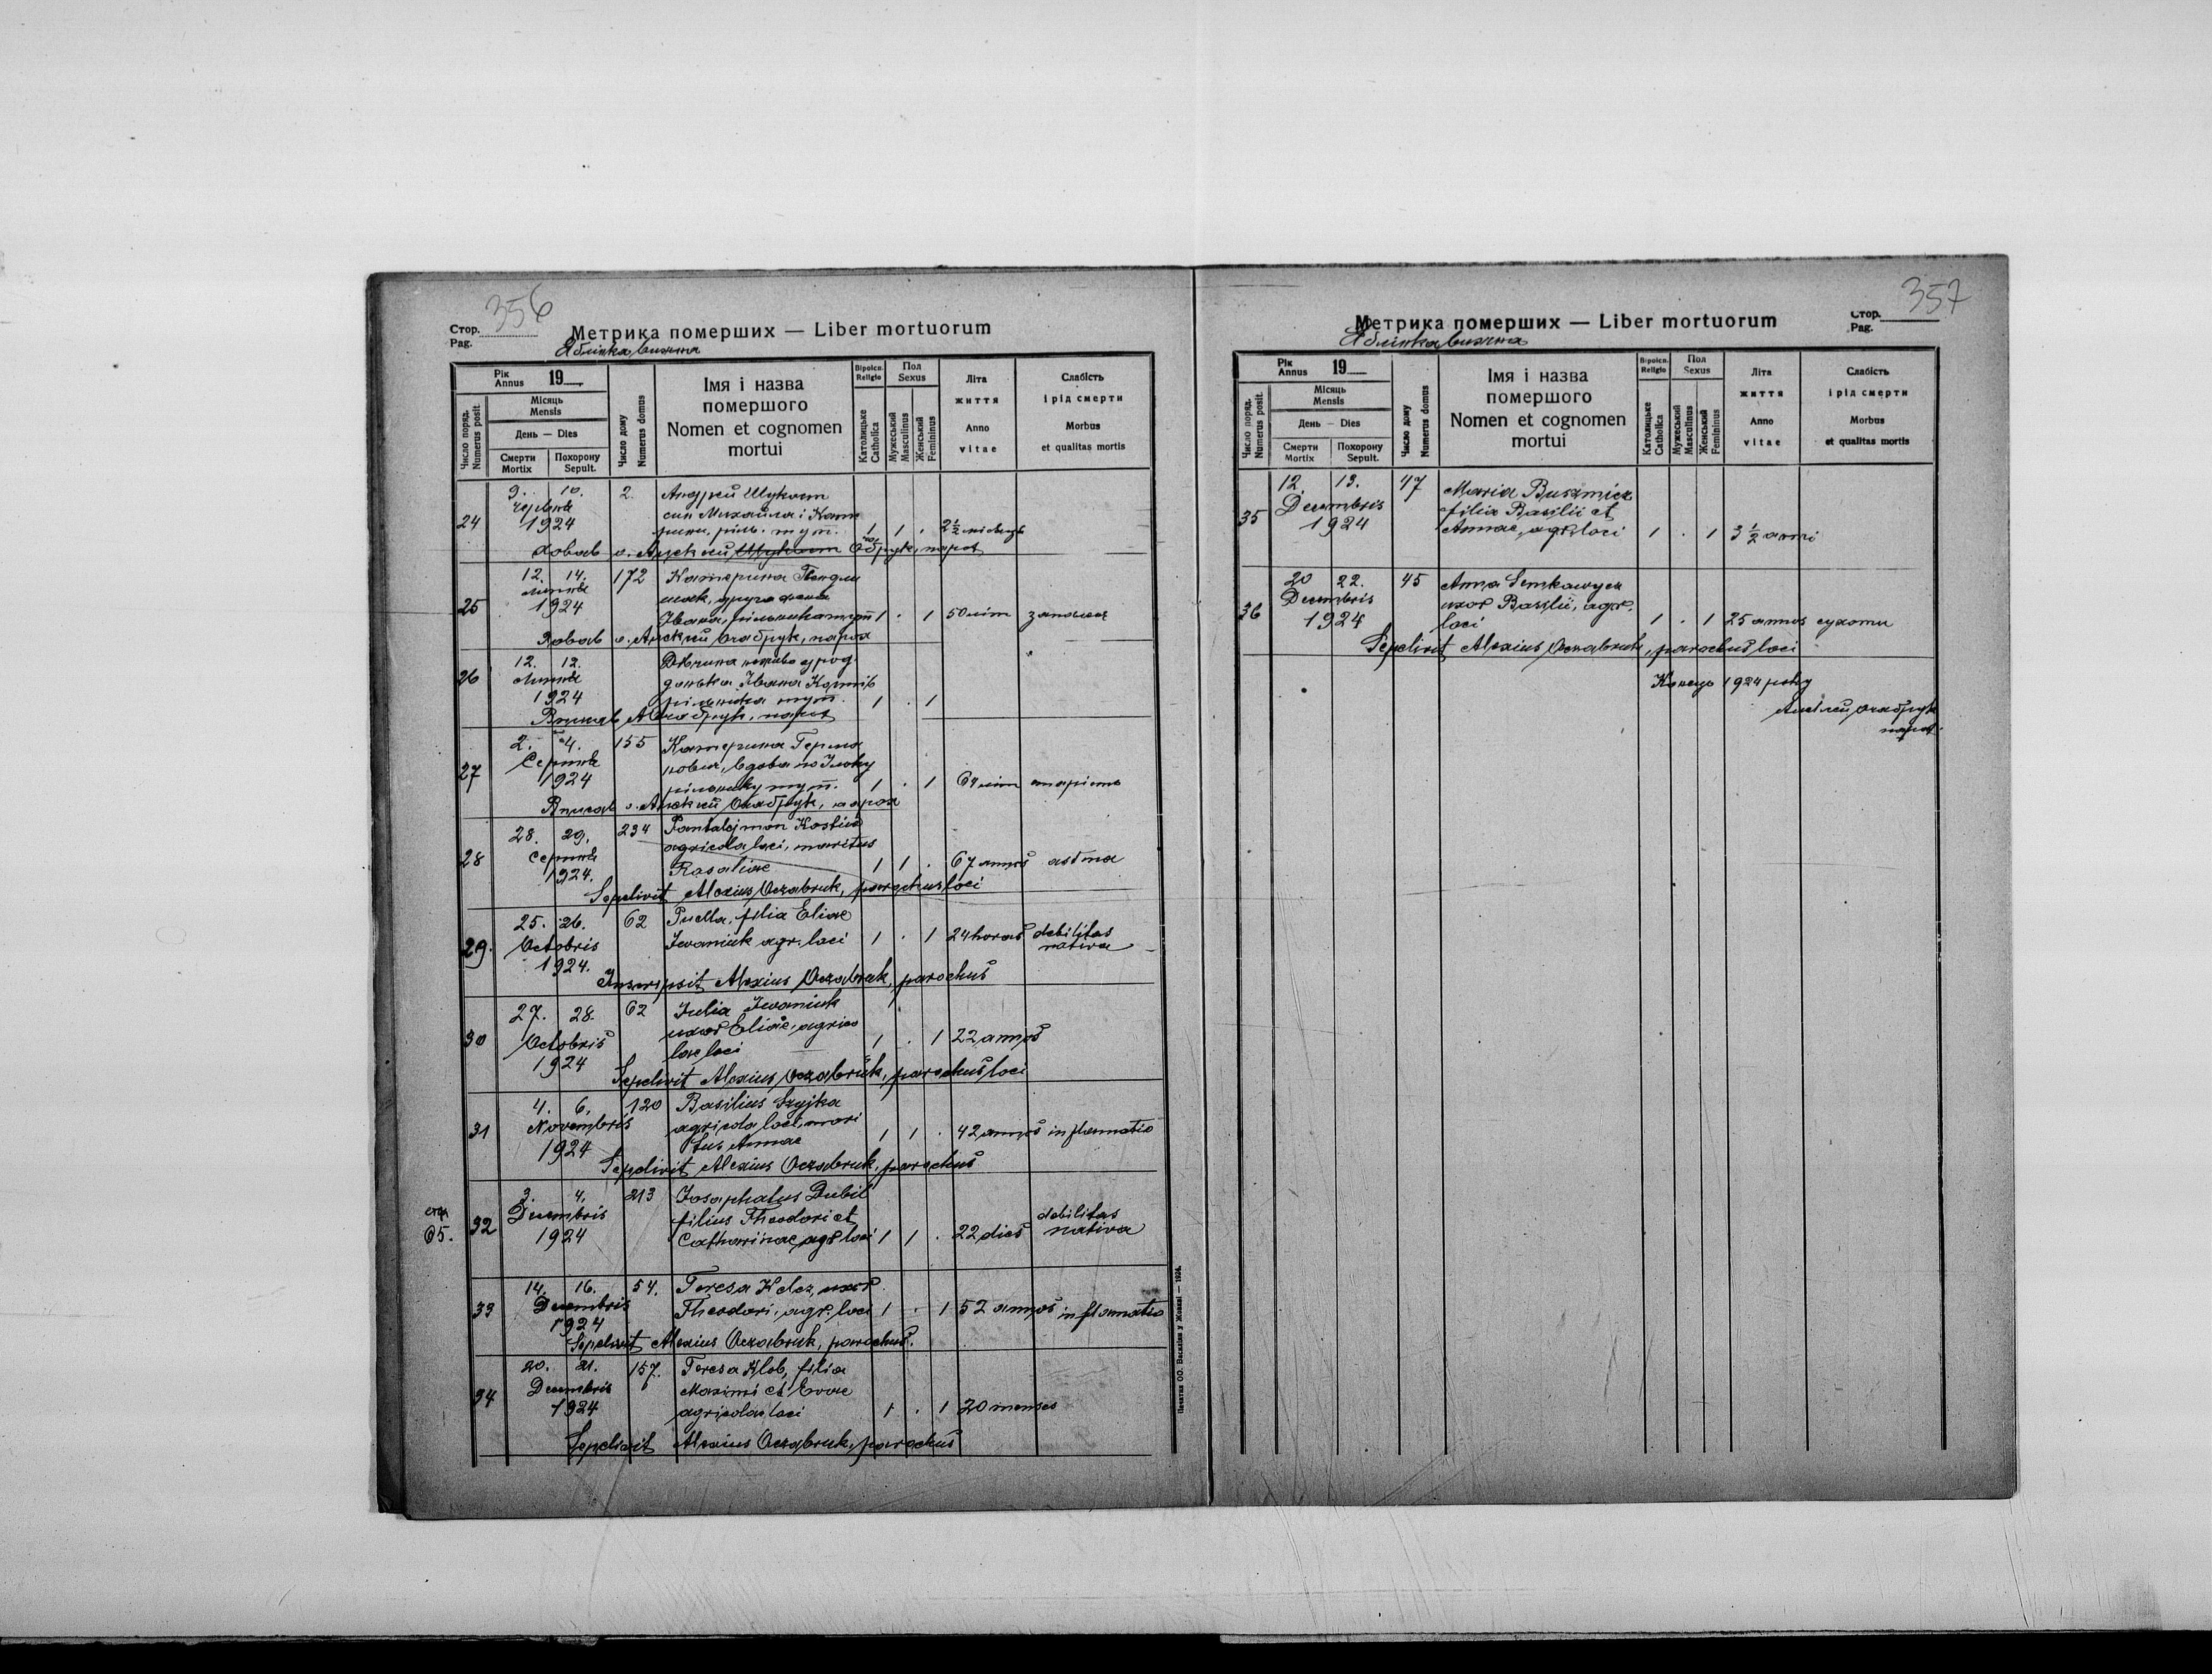 356
Стор.
Pag.
Метрика померших — Liber mortuorum
Яблінка вижна
Рік
Annus 19
Число поряд.
Numerus posit.
Місяць
Mensis
День — Dies
Смерти
Mortix
Похорону
Sepult.
Число дому
Numerus domus
Імя і назва
помершого
Nomen et cognomen
mortui
Віроісп.
Religio
Католицьке
Catholica
Пол
Sexus
Мужеський
Masculinus
Женський
Femininus
Літа
життя
Anno
vitae
Слабість
і рід смерти
Morbus
et qualitas mortis
9. 10. 2. Андрей
червня син Михайла і Кате
24 1924 рини, ріль. тут. 1 1 . 2 1/2 місяця
Ховав о. Алексій парох
12. 14. 172 Катерина
липня друга жена
25 1924 Івана, рільника тут 1 . 1 50 літ
Ховав о. Алексій Очабрук, парох
12. 12. Дѣвчина неживо урод.
26 липня донька Івана
1924 рільника тут. 1 . 1
Вписав А Очабрук, парох
2. 4. 155 Катерина
Серпня вдова по
27 1924 рільнику тут. 1 . 1 64 літ старість
Вписав о. Алексій Очабрук, парох
28. 29. 234 Pantalejmon Kostiw
серпня agricola loci, maritus
28 1924. Rosaliae 1 1 . 67 annos astma
Sepelivit Alexius Oczabruk, parochus loci
25. 26. 62 Puella, filia Eliae
29. Octobris Iwaniuk agr. loci 1 . 1 24 horas debilitas
nativa
1924.
Inscripsit Alexius Oczabruk, parochus
27. 28. 62 Julia Iwaniuk
30 Octobris uxor Eliae, agrico
1924 lae loci 1 . 1 22 annos
Sepelivit Alexius Oczabruk, parochus loci
4. 6. 120 Basilius Szyjka
31 Novembris agricola loci, mari
1924 tus Annae 1 1 . 42 annos inflamatio
Sepelivit Alexius Oczabruk, parochus
3. 4. 213 Josaphatus Dubil
65. 32 Decembris filius Theodori et
1924 Catharinae, agr loci 1 1 . 22 dies debilitas
nativa
14. 16. 54. Teresa Kelcz, uxor
33 Decembris Theodori, agr. loci 1 . 1 52 annos inflamatio
1924
Sepelivit Alexius Oczabruk, parochus.
20. 21. 157. Teresa Hlob, filia
34 Decembris Maximi et Evae
1924 agricolae loci 1 . 1 20 menses
Sepelivit Alexius Oczabruk, parochus
Печатня ОО. Василіян у Жовкві — 1924.
357
Стор.
Pag.
Метрика померших — Liber mortuorum
Яблінка вижна
Рік
Annus 19
Число поряд.
Numerus posit.
Місяць
Mensis
День — Dies
Смерти
Mortix
Похорону
Sepult.
Число дому
Numerus domus
Імя і назва
помершого
Nomen et cognomen
mortui
Віроісп.
Religio
Католицьке
Catholica
Пол
Sexus
Мужеський
Masculinus
Женський
Femininus
Літа
життя
Anno
vitae
Слабість
і рід смерти
Morbus
et qualitas mortis
12. 13. 47 Maria Buszmicz
35 Decembris filia Basilii et
1924 Annae, agr. loci 1 . 1 3 1/2 anni
20 22. 45 Anna Senkawycz
36 Decembris uxor Basilii, agr.
1924 loci 1 . 1 25 annos сухоти
Sepelivit Alexius Oczabruk, parochus loci
Конець 1924 року
Алексій Очабрук
парох